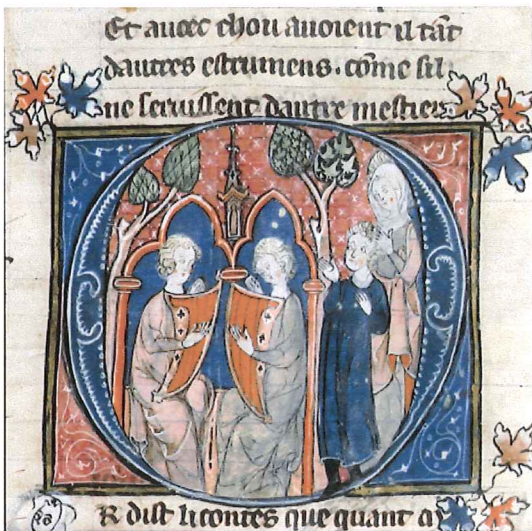 Et auoec chou auoient il tāt
dautres estrumens. cōme sil
ne seruissent dautre mestier.
R dist li contes que quant